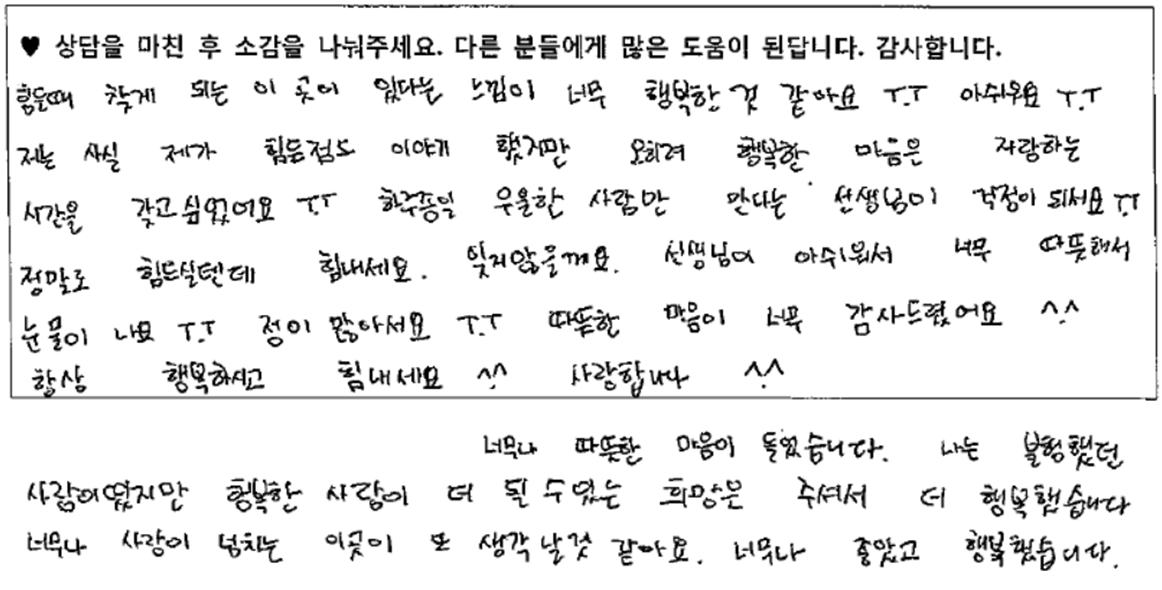 ♥ 상담을 마친 후 소감을 나눠주세요. 다른 분들에게 많은 도움이 된답니다. 감사합니다.
힘들때 찾게 되는 이 곳이 있다는 느낌이 너무 행복한 것 같아요 T.T 아쉬워요 T.T
저는 사실 제가 힘든점도 이야기 했지만 오히려 행복한 마음은 자랑하는
시간을 갖고 싶었어요 T.T 하루종일 우울한 사람만 만나는 선생님이 걱정이 되서요 T.T
정말로 힘드실텐데 힘내세요. 잊지않을께요. 선생님이 아쉬워서 너무 따뜻해서
눈물이 나요 T.T 정이 많아서요 T.T 따뜻한 마음이 너무 감사드렸어요 ^.^
항상 행복하시고 힘내세요 ^.^ 사랑합니다 ^.^
너무나 따뜻한 마음이 들었습니다. 나는 불행했던
사람이었지만 행복한 사람이 더 될 수 있는 희망은 주셔서 더 행복했습니다
너무나 사랑이 넘치는 이곳이 또 생각날것 같아요. 너무나 좋았고 행복했습니다.